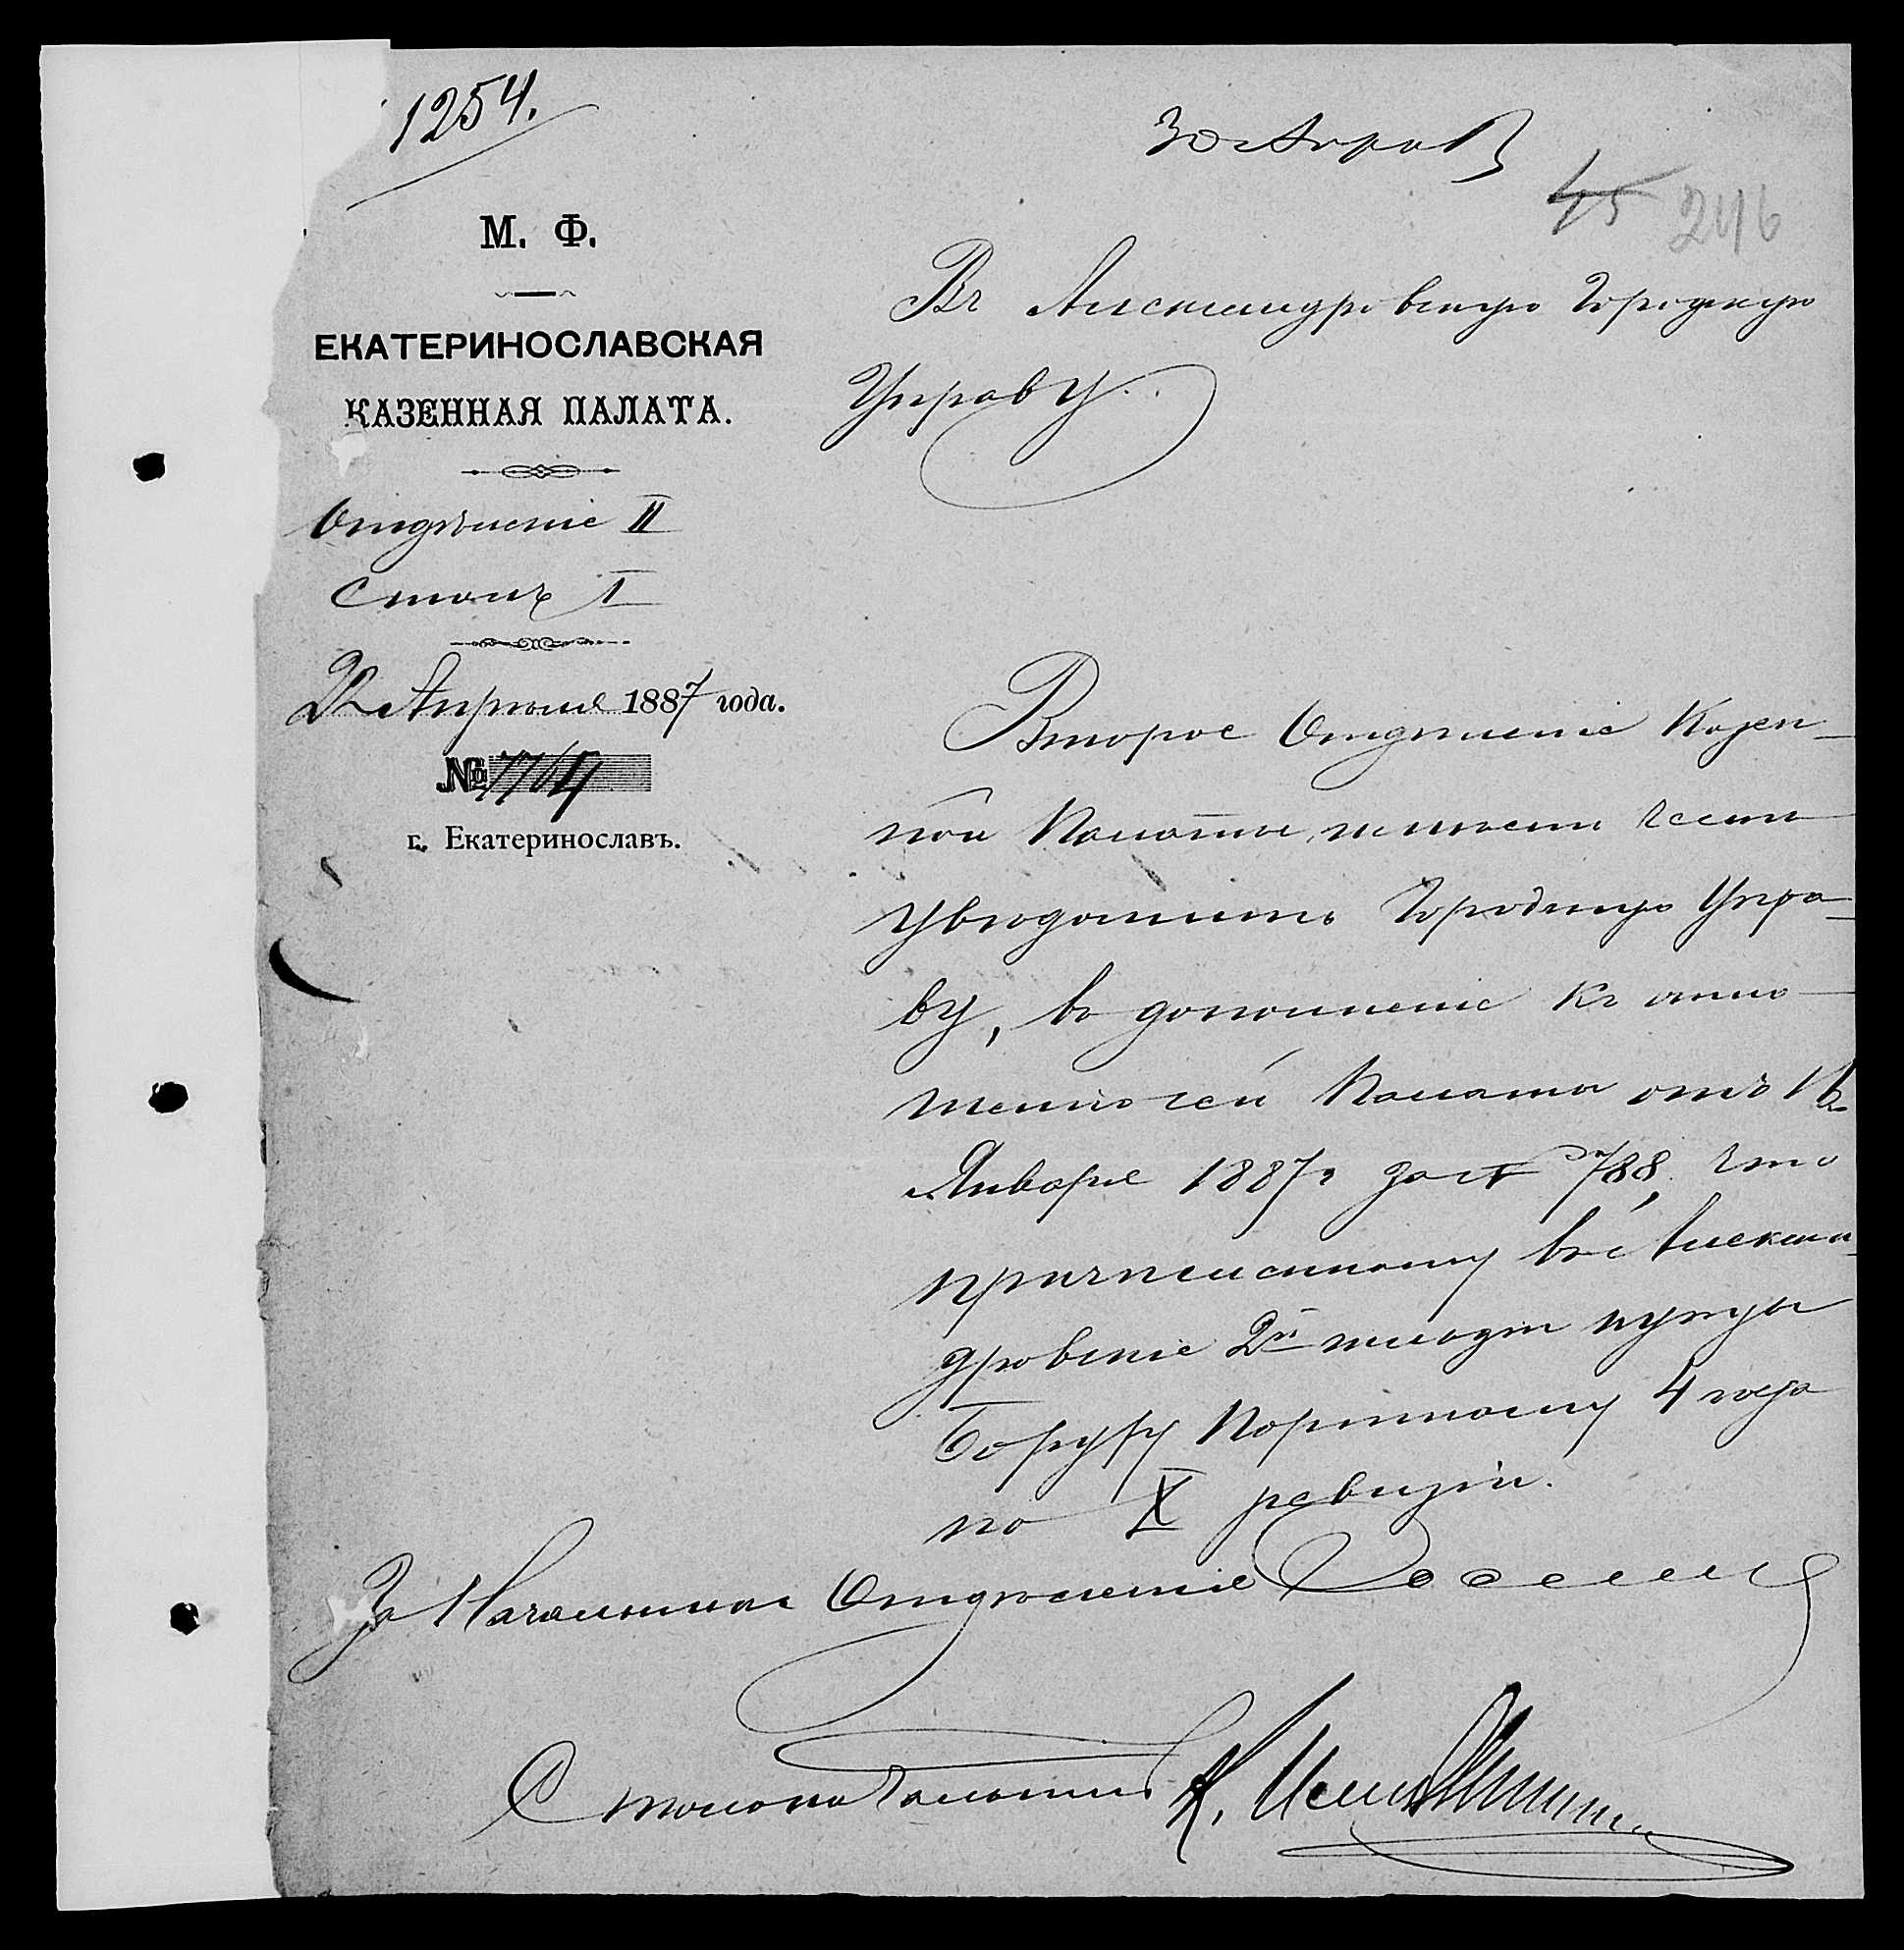 1254.
30 Апр
45 246
М. Ф.
ЕКАТЕРИНОСЛАВСКАЯ
КАЗЕННАЯ ПАЛАТА.
Отдѣленіе II
Столъ I
22 Апрѣля 1887 года.
№ 7764
г. Екатеринославъ.
Въ Александровскую Городскую
Управу.
Второе Отдѣленіе Казен-
ной Палаты имѣетъ честь
увѣдомить Городскую Упра-
ву, въ дополненіе къ отно-
шенію сей Палаты отъ 16
Января 1887 г за № 788, что
причисленному въ Алексан-
дровскіе 2й гильдіи купцы
Боруху Портному 4 года
по X ревизіи.
За Начальника Отдѣленія
Столоначальникъ К.